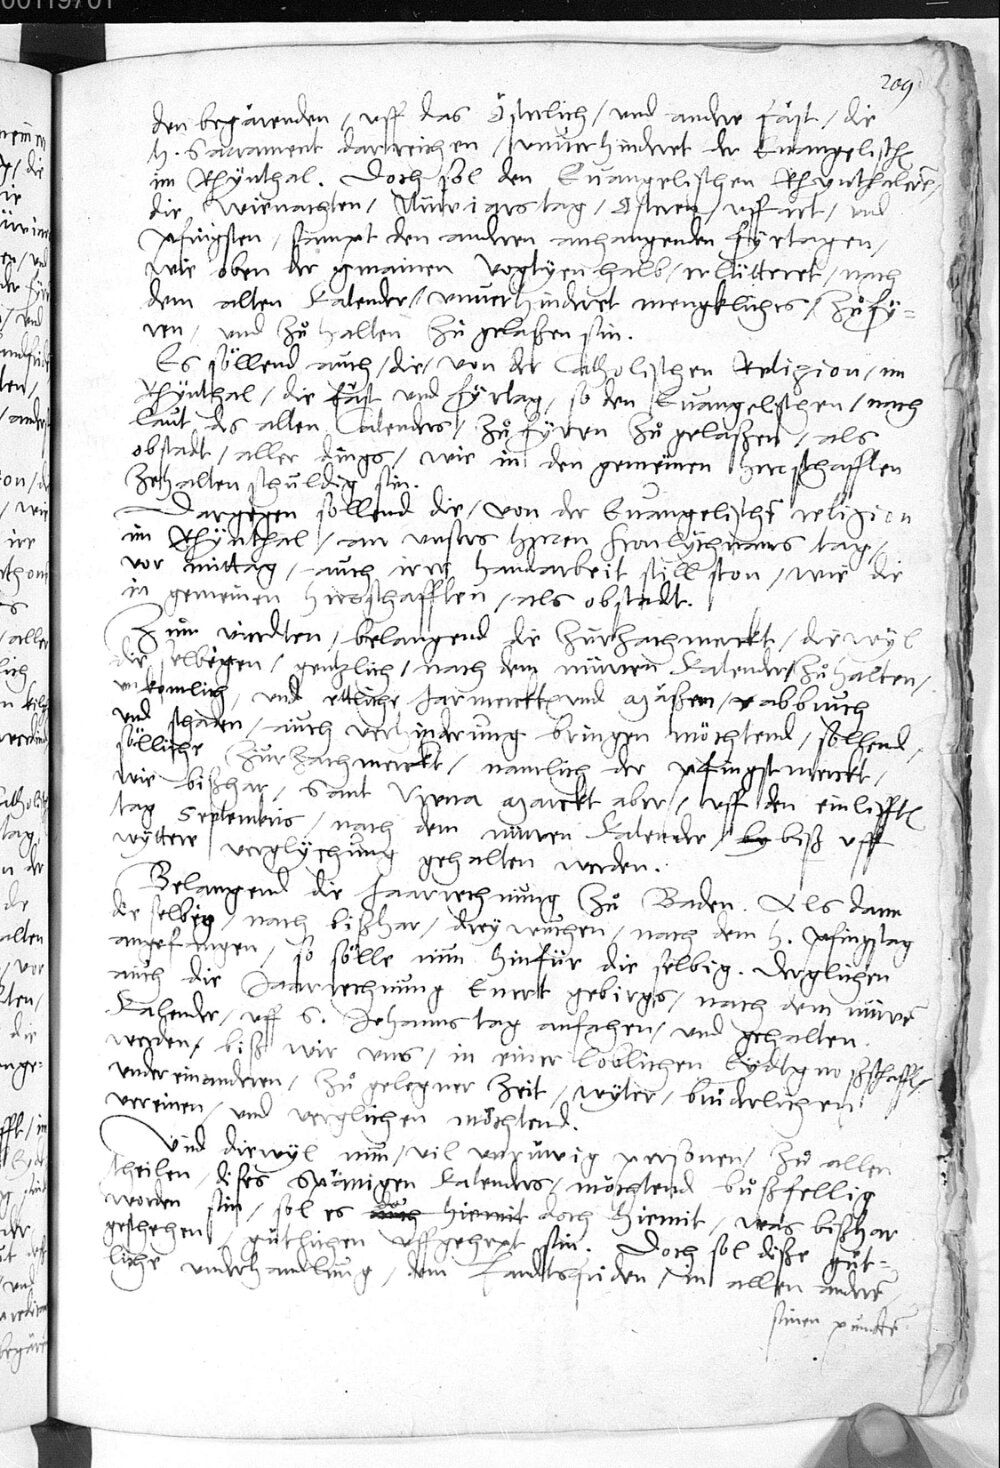 209
den begärenden / uff das Österlich / und andere Fäst / die
H. Sacrament darreichen / unverhinderet der Evangelische
im Rhynthal. Doch sol den Evangelischen Rhynthalere /
die Wienachten / Nüwjarstag / Osteren / uffart / und
Pfingsten / sampt den anderen anhangenden Fyrtagen /
wie oben der gmainen Vogtyen halb / erlütteret / nach
dem alten Kalender / unverhinderet mengkliches / zů fy-
ren / und zů halten zů gelaßen sin.
Es söllend auch / die / von der Catholischen Religion / im
Rhynthal / die Fäst und Fyrtag / so den Evangelischen / nach
laut des alten Calenders / zů fyren zů gelaßen / als
obstadt / aller dings / wie in den gemeinen Herrschafften
zehalten schuldig sin.
Dargegen söllend die / von der Evangelische religion
im Rhynthal / an unsers Herren Fronlychnams tag /
vor mittag / auch irer handarbeit still ston / wie die
in gemeinen Herrschafften / als obstadt.
Zum vierdten / belangend die Zurzachmerckt / diewyl
die selbigen / gentzlich / nach dem nüwen Kalender / zů halten /
unkomlich / und ettliche Jarmerckt und Mäßen / abbruch
und schaden / auch verhinderung bringen möchtend / söllend
sölliche Zurzachmerckt / namlich der Pfingstmerckt /
wie bißhar / Sant Vrena Marckt aber / uff den einlifften
tag Septembris / nach dem nüwen Kalender / biß uff
wyttere verglychung gehalten werden.
Belangend die Jaarrechnung zů Baden. Als dann
die selbig / nach bißhar / drey wuchen / nach dem H. Pfingstag
angefangen / so sölle nun hinfür die selbig. Derglichen
auch die Jaarrechnung Enert gebirgs / nach dem nüwe
Kalender / uff S. Johanns tag anfahen / und gehalten
werden / biß wir uns / in einer loblichen Eydtgnoßschafft /
under einanderen / zů gelegner Zeit / wyter / brüderlichen
vereinen / und verglichen möchtend.
Und diewyl nun / vil unrüwig personen / zů allen
theilen / dises spänigen Kalenders / möchtend bůßfellig
worden sin / sol es doch hiemit / was bißhar
geschehen / gütlichen uffgehept sin. Doch sol diße güt-
liche underhandlung / dem Landtsfriden / in allen andere
sinen puncte